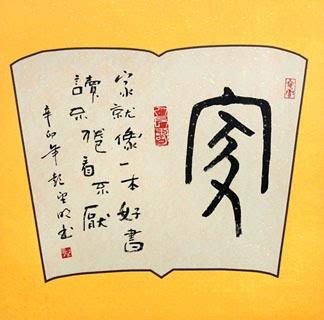 家
家就像一本好書
讀不倦看不厭
辛卯年彭明書